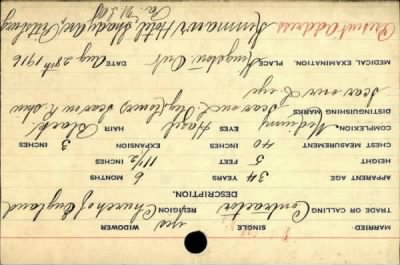 MARRIED- yes SINGLE WIDOWER
TRADE OR CALLING Contractor RELIGION Church of England
DESCRIPTION.
APPARENT AGE 34 YEARS 6 MONTHS
HEIGHT 5 FEET 11 1/2 INCHES
CHEST MEASUREMENT 40 INCHES EXPANSION 3 INCHES
COMPLEXION, Medium EYES Hazel HAIR Black
DISTINGUISHING MARKS Scar on L. Scar on R. shin
Scar over R. eye
MEDICAL EXAMINATION. PLACE Kingston Ont DATE Aug 28th 1916
Present Address Hotel, Shady Ave, Pittsburg
Pa. U.S.A.